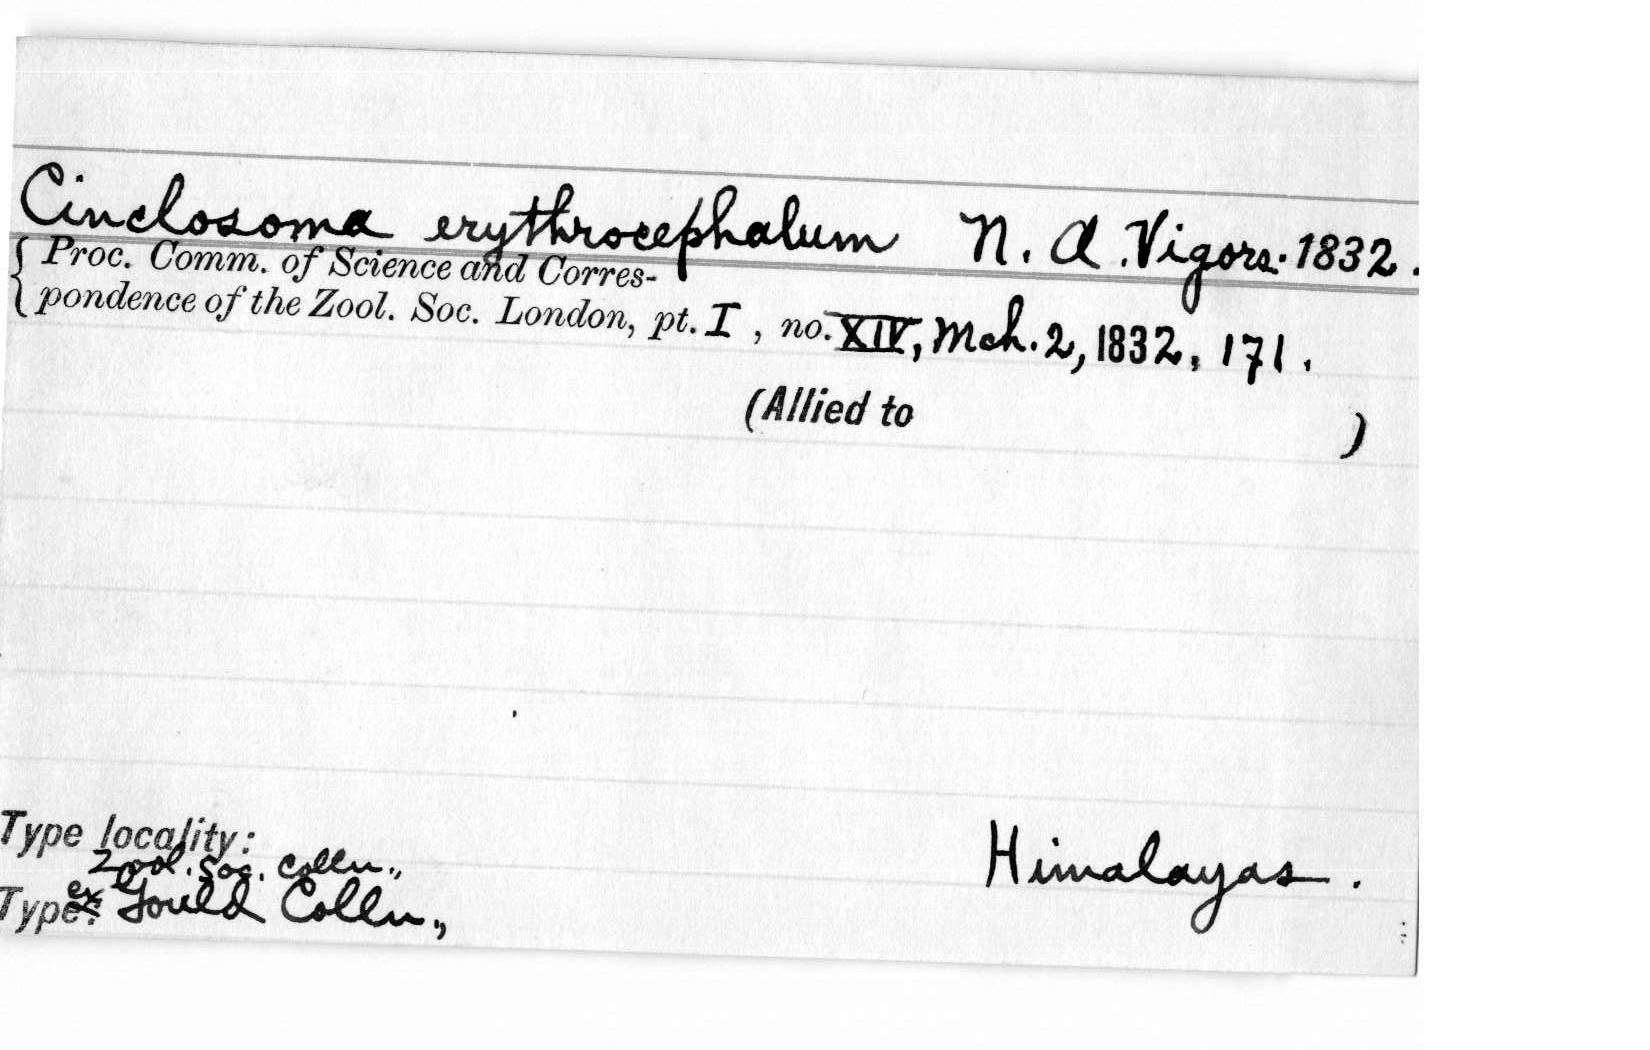 Cinclosoma erythrocephalum N. A. Vigors. 1832.
{ Proc. Comm. of Science and Corres-
{ pondence of the Zool. Soc. London, pt. I , no. XIV, Mch. 2, 1832, 171.
(Allied to )
Type locality: Himalayas.
Zool. Soc. Colln.,
Type: ex Gould Colln.,